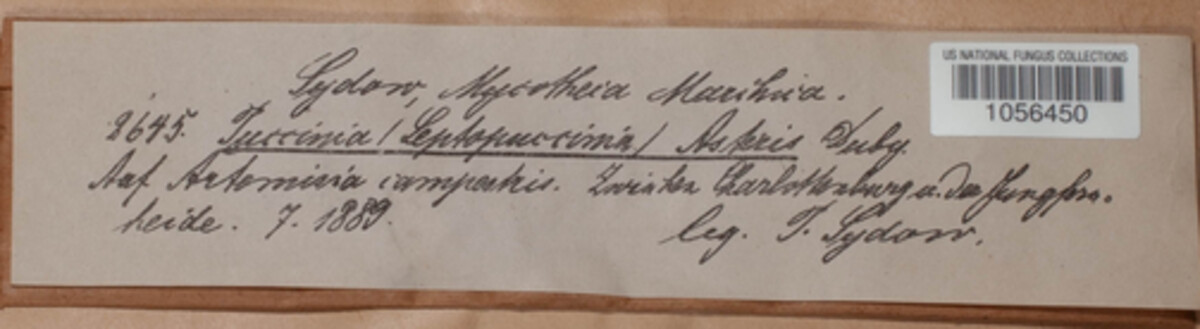 Sydow, Mycotheca Marchica.
2645. Puccinia (Leptopuccinia) Asteris Duby.
Auf Artemisia campestris. Zwischen Charlottenburg u. der Jungfern-
heide. 7. 1889. leg. P. Sydow.
US NATIONAL FUNGUS COLLECTIONS
1056450